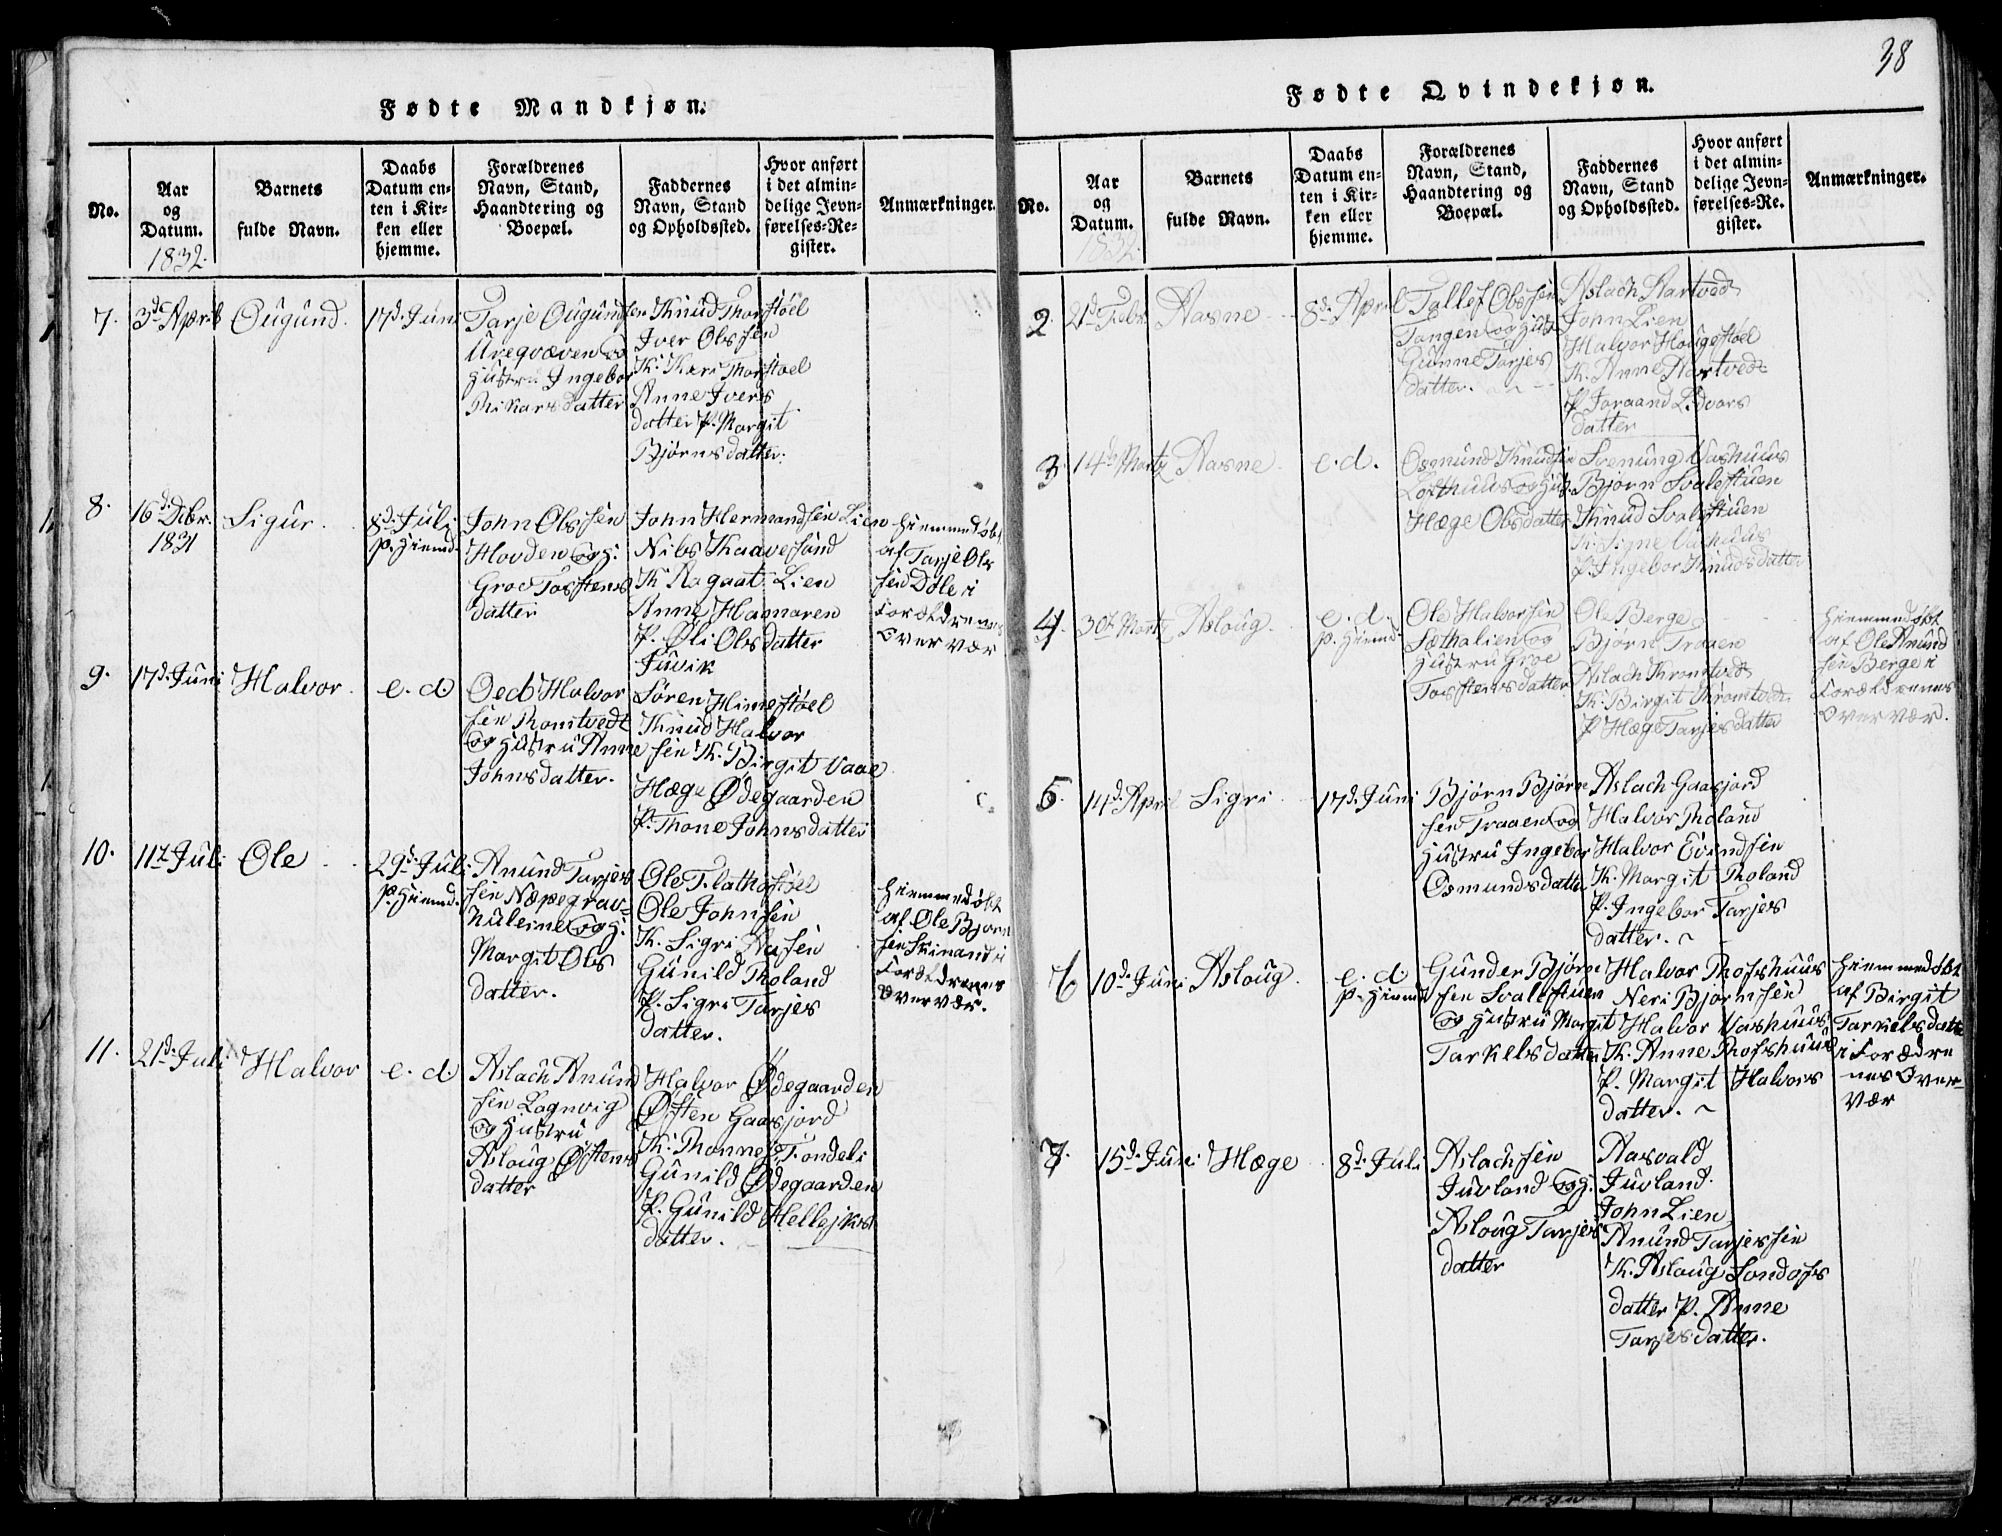 38
Fødte Mandkjøn.
No.
Aar
og
Datum.
1832.
Barnets
fulde Navn.
Daabs
Datum en-
ten i Kir-
ken eller
hjemme.
Forældrenes
Navn, Stand,
Haandtering og
Boepæl.
Faddernes
Navn, Stand
og Opholdssted.
Hvor anført
i det almin-
delige Jevn-
førelses-Re-
gister.
Anmærkninger.
7.
3d April
Ougund.
17d. Juni
Tarje Ougundsen
Uregvæven og
Hustru Ingebor
Rikarsdatter
Knud Thorstøel
Iver Olssen
K. Kari Thorstøel
Anne Ivers
datter P. Margit
Bjørnsdatter.
8.
16d Dcbr.
1831
Sigur.
8d. Juli
p. Hiemd.
John Olssen
Hovden og H.
Groe Tostens
datter
John Hermandsen Lien
Nils Kaavesand
K. Ragaat Lien
Anne Hamaren
P. Øli Olsdatter
Juvik
Hiemmedøbt
af Tarje Ols
sen Døle i
Forældrenes
Overvær
9.
17d. Juni
Halvor.
e. d
Oed Halvor
sen Romtvedt
og Hustru Anne
Johnsdatter.
Søren Himestøel
Knud Halvor
sen K. Birgit Vaae
Hæge Ødegaarden
P. Thone Johnsdatter
10.
11te Juli
Ole
29d. Juli
p. Hiemd.
Anund Tarjes
sen Næpegrav-
huleine og H.
Margit Ols
datter.
Ole Flathostøel
Ole Johnsen
K. Sigri Aasen
Gunild Tholand
P. Sigri Tarjes
datter.
Hiemmedøbt
af Ole Bjørn
sen Skinand i
Forældrenes
Overvær.
11.
21d. Juli
Halvor
e. d
Aslach Anund
sen Lognvig
og Hustru
Asloug Østens
datter
Halvor Ødegaarden
Østen Gaasjord
K. Thonne Tondeli
Gunild Ødegaarden
P. Gunild Hellejks
datter.
Fødte Qvindekjøn.
No.
Aar
og
Datum.
1832.
Barnets
fulde Navn.
Daabs
Datum en-
ten i Kir-
ken eller
hjemme.
Forældrenes
Navn, Stand,
Haandtering og
Boepæl.
Faddernes
Navn, Stand
og Opholdssted.
Hvor anført
i det almin-
delige Jevn-
førelses-Re-
gister.
Anmærkninger.
2.
21d Febr.
Aasne
8d. April
Tallef Olssen
Tangen og Hust
Gunne Tarjes
datter.
Aslach Hartvedt
John Lien
Halvor Hougestøel
K. Anne Hartvedt
P. Joraand Ledvors
datter
3.
14d Martz
Aasne
e. d.
Osmund Knudsen
Lofthuus og Hus.
Hæge Olsdatter
Svenung Vashuus
Bjørn Svalestuen
Knud Svalestuen
K. Signe Vashuus
P. Ingebor Knudsdatter
4.
30d Martz
Asloug.
e. d.
p. Hiemd.
Ole Halvorsen
Sæthalien og
Hustru Groe
Tostensdatter
Ole Berge
Bjørn Traaen
Aslach Kromtvedt
K. Birgit Kromtvedt
P Hæge Tarjesdatter
Hiemmedøbt
af Ole Anund
sen Berge i
Forældrenes
Overvær.
5.
14d. April
Sigri
17d. Juni
Bjørn Bjørn
sen Traaen og
Hustru Ingebor
Osmundsdatter
Aslach Gaasjord
Halvor Tholand
Halvor Evindsen
K. Margit Tholand
P. Ingebor Tarjes
datter.
6
10d. Juni
Asloug.
e. d
p. Hiemd
Gunder Bjørn
sen Svalestuen
og Hustru Margit
Tarkelsdatter
Halvor Rofshuus
Neri Bjørnsen
Halvor Vashuus
K. Anne Rofshuus
P. Margit Halvors
datter.
Hiemmedøbt
af Birgit
Tarkelsdatter
i Forældre
nes Over-
vær
7.
15d. Juni
Hæge
8d. Juli
Aslachsen
Juvland og H.
Asloug Tarjes
datter
Aasvald
Juvland.
John Lien
Anund Tarjessen
K. Asloug Sondofs
datter P. Anne
Tarjesdatter.